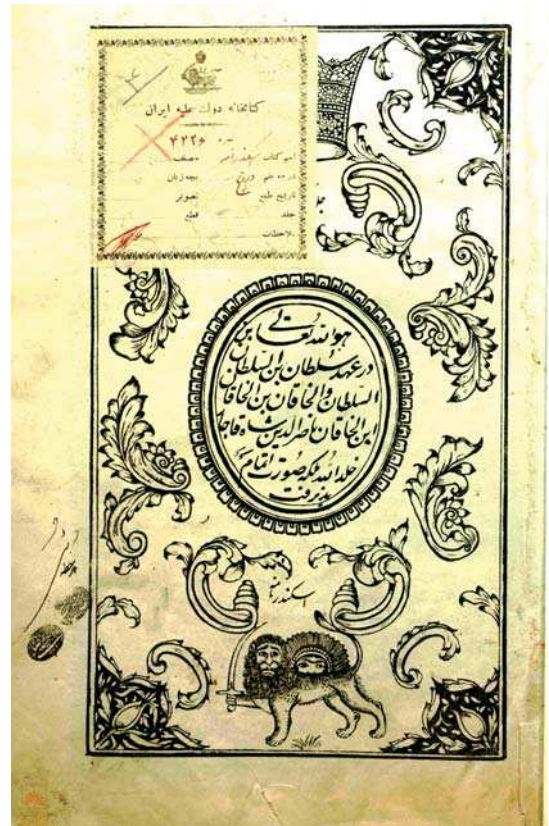 کتابخانه دولت علیه ایران
۴۲۲۶
اسم کتاب مصنف
تاریخ طبع تصویر
جلد قطع
ملاحظات
هو الله تعالی
در عهد سلطان بن السلطان بن
السلطان والخاقان بن الخاقان
ابن الخاقان ناصرالدین شاه قاجار
خلد الله ملکه صورت اتمام
پذیرفت
اسکندرنامه